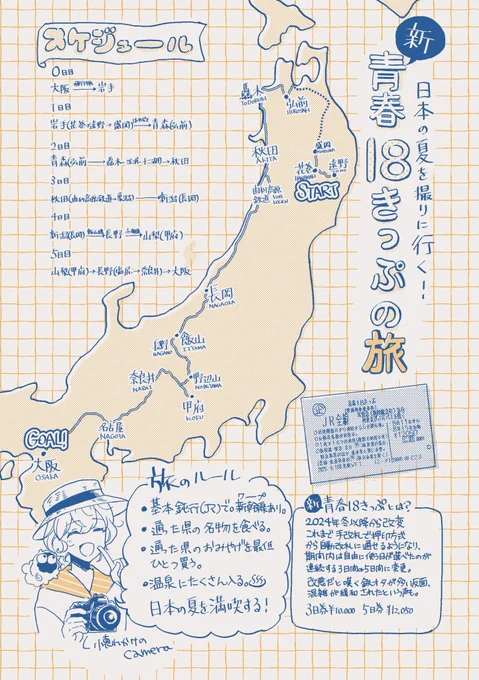 スケジュール
0日目
大阪→岩手
1日目
岩手(花巻→遠野→盛岡)→青森(弘前)
2日目
青森(弘前→→秋田
3日目
秋田(→新潟(長岡)
4日目
新潟(長岡)→長野→山梨(甲府)
5日目
山梨(甲府)→長野(塩尻→奈良井)→大阪
新
青春18きっぷの旅
日本の夏を撮りに行く!!
轟木
TODOROKI
弘前
HIROSAKI
秋田
AKITA
盛岡
MORIOKA
花巻
HANAMAKI
遠野
TONO
START
由利高原
鉄道
YURI
KOGEN
長岡
NAGAOKA
飯山
IIYAMA
長野
NAGANO
奈良井
NARAI
野辺山
NOBEYAMA
甲府
KOFU
名古屋
NAGOYA
GOAL!
大阪
OSAKA
JR全線
旅のルール
•基本鈍行(JR)で。新幹線あり。
ワープ
•通った県の名物を食べる。
•通った県のおみやげを最低
ひとつ買う。
•温泉にたくさん入る。
日本の夏を満喫する!
新青春18きっぷとは?
2024年冬以降から改変
これまで手改札で押印方式
から自動改札に通せるようになり、
期間内は自由に使う日が選べたのが
連続する3日間or5日間に変更。
改悪だと嘆く鉄オタが多い反面、
混雑が緩和されたという声も。
3日券¥10,000 5日券¥12,050
Camera